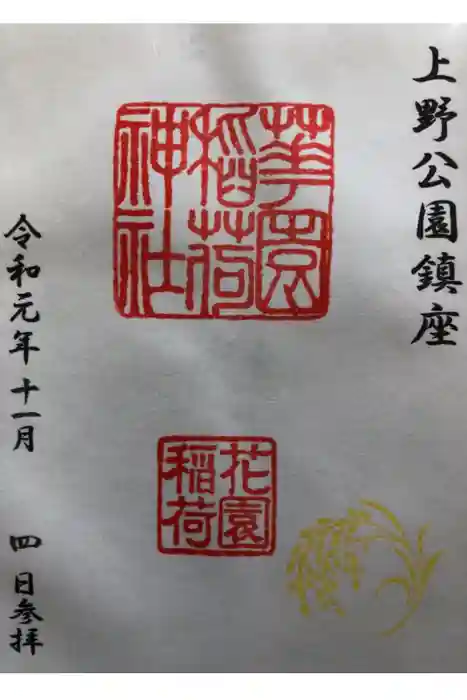 上野公園鎮座
華園
稲荷
神社
花園
稲荷
令和元年十一月 四日参拝